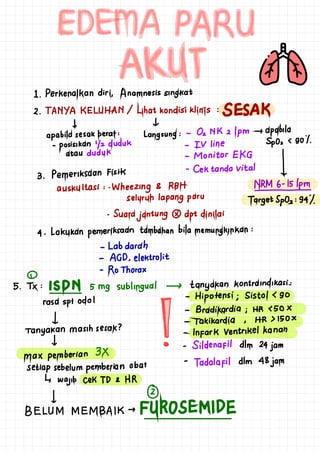 EDEMA PARU
AKUT
1. Perkenalkan diri, Anamnesis singkat
2. TANYA KELUHAN / Lihat kondisi klinis : SESAK
apabila sesak berat :
- posisikan 1/2 duduk
atau duduk
Langsung : - O2 NK 2 lpm → apabila
SpO2 < 90%.
- IV line
- Monitor EKG
- Cek tanda vital
NRM 6-15 lpm
Target SpO2 : 94%
3. Pemeriksaan Fisik
auskultasi : - Wheezing & RBH
seluruh lapang paru
- Suara jantung ⊗ dpt dinilai
4. Lakukan pemeriksaan tambahan bila memungkinkan :
- Lab darah
- AGD, elektrolit
- Ro Thorax
①
5. Tx : ISDN 5 mg sublingual → tanyakan kontraindikasi :
rasa spt odol
- Hipotensi ; Sistol < 90
- Bradikardia ; HR < 50 x
- Takikardia , HR > 150 x
- Inpark Ventrikel kanan
- Sildenafil dlm 24 jam
- Tadalafil dlm 48 jam
!
Tanyakan masih sesak?
max pemberian 3X
setiap sebelum pemberian obat
↳ wajib cek TD & HR
②
BELUM MEMBAIK → FUROSEMIDE